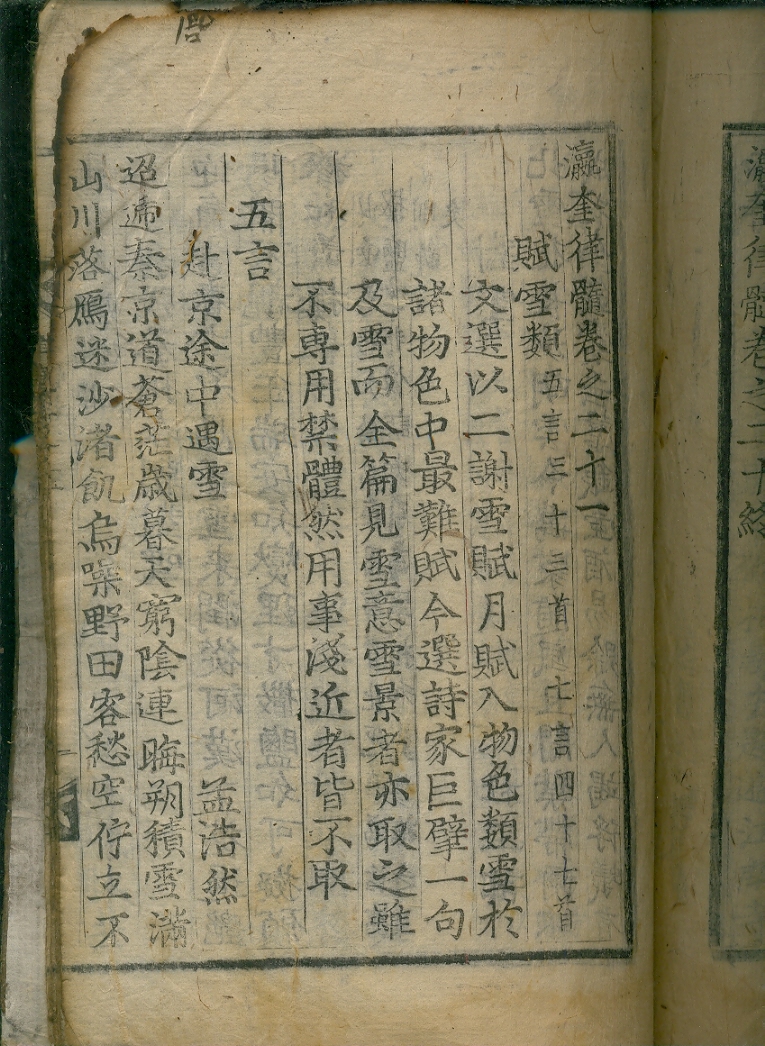 瀛奎律髓卷之二十終
瀛奎律髓卷之二十一
賦雪類 五言三十三首七言四十七首
文選以二謝雪賦月賦入物色類雪於
諸物色中最難賦今選詩家巨擘一句
及雪而全篇見雪意雪景者亦取之雖
不専用禁體然用事淺近者皆不取
五言
赴京途中遇雪 孟浩然
迢遞秦京道蒼茫歲暮天窮陰連晦朔積雪滿
山川落鴈迷沙渚飢烏噪野田客愁空佇立不